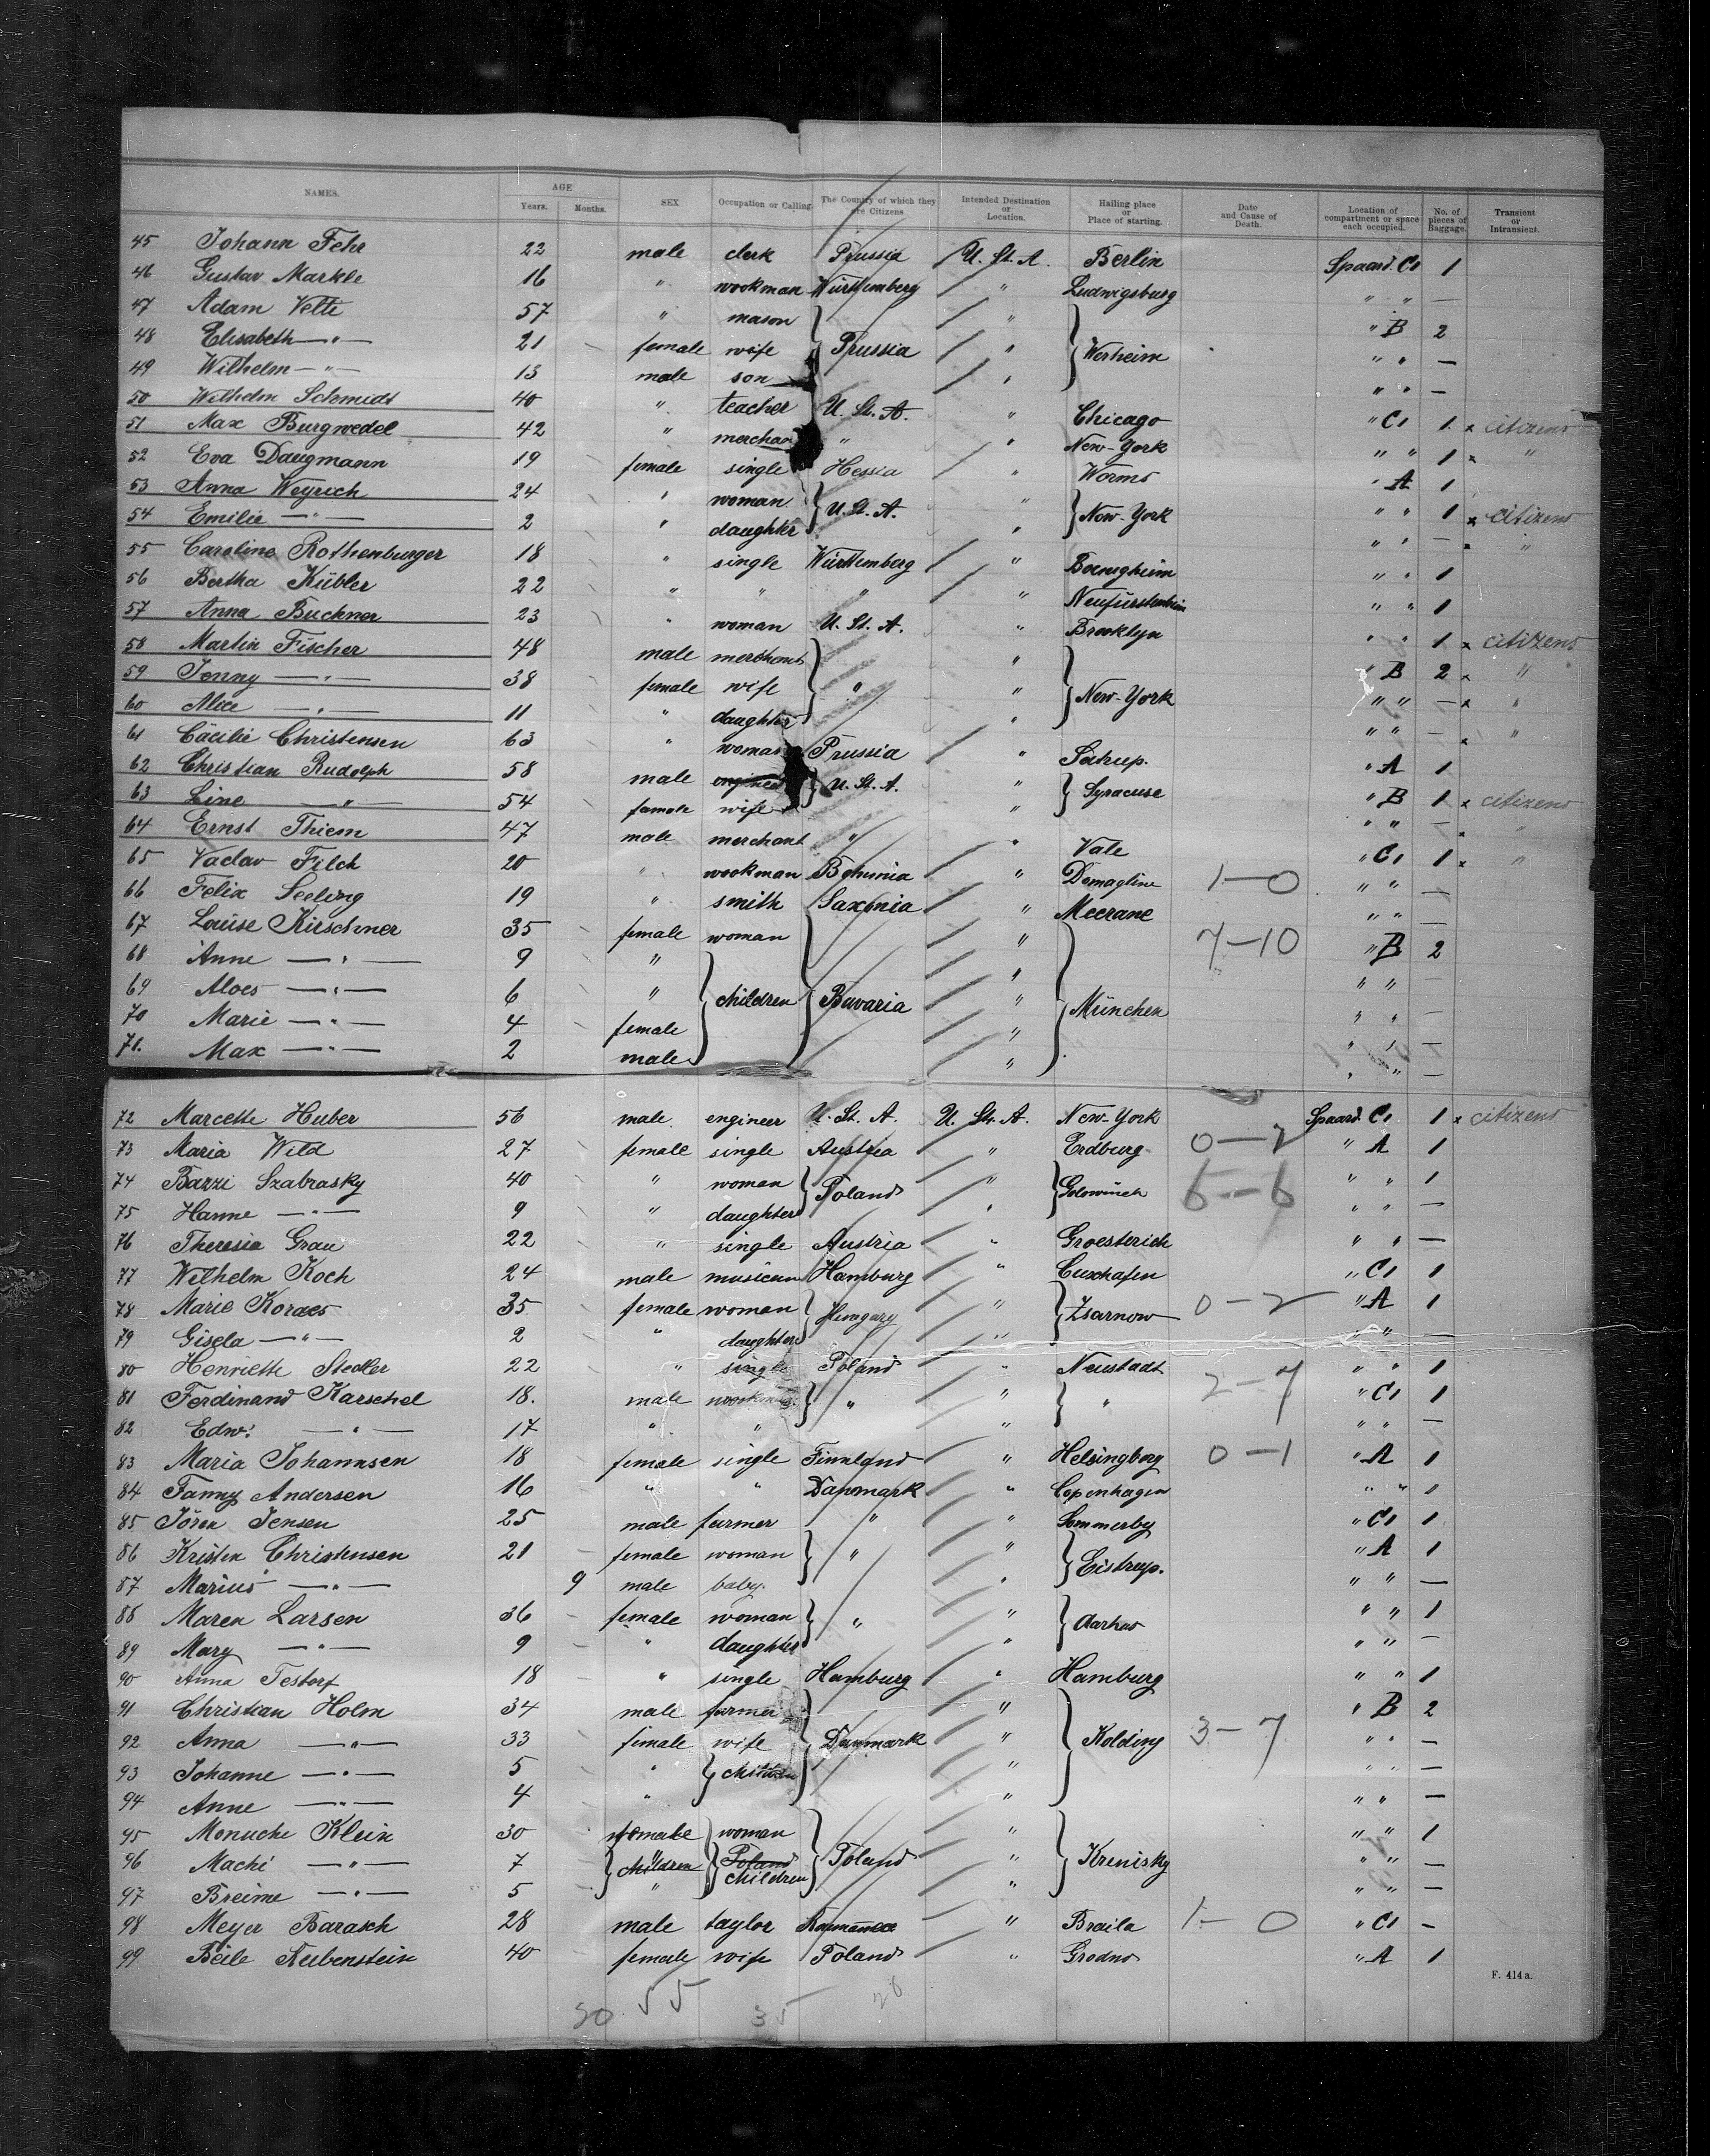 NAMES. AGE Years. Months. SEX Occupation or Calling. The Country of which they are Citizens Intended Destination or Location. Hailing place or Place of starting. Date and Cause of Death. Location of compartment or space each occupied. No. of pieces of Baggage. Transient or Intransient.
45 Johann Fehr 22 male clerk Prussia U. St. A. Berlin Spaard. C1 1
46 Gustav Markle 16 " workman Württemberg " Ludwigsburg " " —
47 Adam Vette 57 " mason " " B 2
48 Elisabeth —"— 21 female wife Prussia " Werheim " " —
49 Wilhelm —"— 13 male son " " " —
50 Wilhelm Schmidt 40 " teacher U. St. A. " Chicago " C1 1 x citizens
51 Max Burgwedel 42 " merchan " " New-York " " 1 x "
52 Eva Daugmann 19 female single Hessia " Worms " A 1
53 Anna Weyrich 24 " woman U. St. A. " New-York " " 1 x citizens
54 Emilie —"— 2 " daughter " " " — x "
55 Caroline Rothenburger 18 " single Württemberg " Boenigheim " " 1
56 Bertha Kübler 22 " " " " " " 1
57 Anna Buckner 23 " woman U. St. A. " Brooklyn " " 1 x citizens
58 Martin Fischer 48 male merchant " " B 2 x "
59 Jenny —"— 38 female wife " " New-York " " — x "
60 Alice —"— 11 " daughter " " " — x "
61 Cäcilie Christensen 63 " woman Prussia " Satrup. " A 1
62 Christian Rudolph 58 male engineer U. St. A. " Syracuse " B 1 x citizens
63 Line —"— 54 female wife " " " — x "
64 Ernst Thiem 47 male merchant " " Vale " C1 1 x "
65 Vaclav Filch 20 " workman Bohimia " Domagline 1—0 " " —
66 Felix Seeling 19 " smith Saxonia " Meerane " " —
67 Louise Kirschner 35 female woman " 7—10 " B 2
68 Anne —"— 9 " " " "
69 Aloes —"— 6 " children Bavaria " München " " —
70 Marie —"— 4 female " " " —
71. Max —"— 2 male " " " —
72 Marcette Huber 56 male engineer U. St. A. U. St. A. New-York Spaard. C1 1 x citizens
73 Maria Wild 27 female single Austria " Erdburg 0—2 " A 1
74 Bazzi Szabrasky 40 " woman Poland " 6—6 " " 1
75 Hanne —"— 9 " daughter " " " —
76 Theresia Grau 22 " single Austria " Groesterich " " —
77 Wilhelm Koch 24 male musician Hamburg " Cuxhafen " C1 1
78 Marie Koraes 35 female woman Hungary " Zsarnow 0—2 " A 1
79 Gisela —"— 2 " daughter " " " —
80 Henriette Stedler 22 " single Poland " Neustadt " " 1
81 Ferdinand Karschel 18. male workman " " " 2—7 " C1 1
82 Edw. —"— 17 " " " " " —
83 Maria Johannsen 18 female single Finnland " Helsingborg 0—1 " A 1
84 Fanny Andersen 16 " " Danmark " Copenhagen " " 1
85 Jören Jensen 25 male farmer " " Sommerby " C1 1
86 Kristen Christensen 21 female woman " " Eistrup. " A 1
87 Marius —"— 9 male baby. " " " —
88 Maren Larsen 36 female woman " " Aarhus " " 1
89 Mary —"— 9 " daughter " " " —
90 Anna Testorf 18 " single Hamburg " Hamburg " " 1
91 Christian Holm 34 male farmer " " B 2
92 Anna —"— 33 female wife Danmark " Kolding 3—7 " " —
93 Johanne —"— 5 " children " " " —
94 Anne —"— 4 " " " " —
95 Monuche Klein 30 female woman " " " 1
96 Machi —"— 7 children Poland children Poland " Krenisky " " —
97 Breime —"— 5 " " " " —
98 Meyer Barasch 28 male taylor Roumanea " Braila 1—0 " C1 —
99 Beile Rubenstein 40 female wife Poland " Grodno " A 1
F. 414a.
20 55 35 20